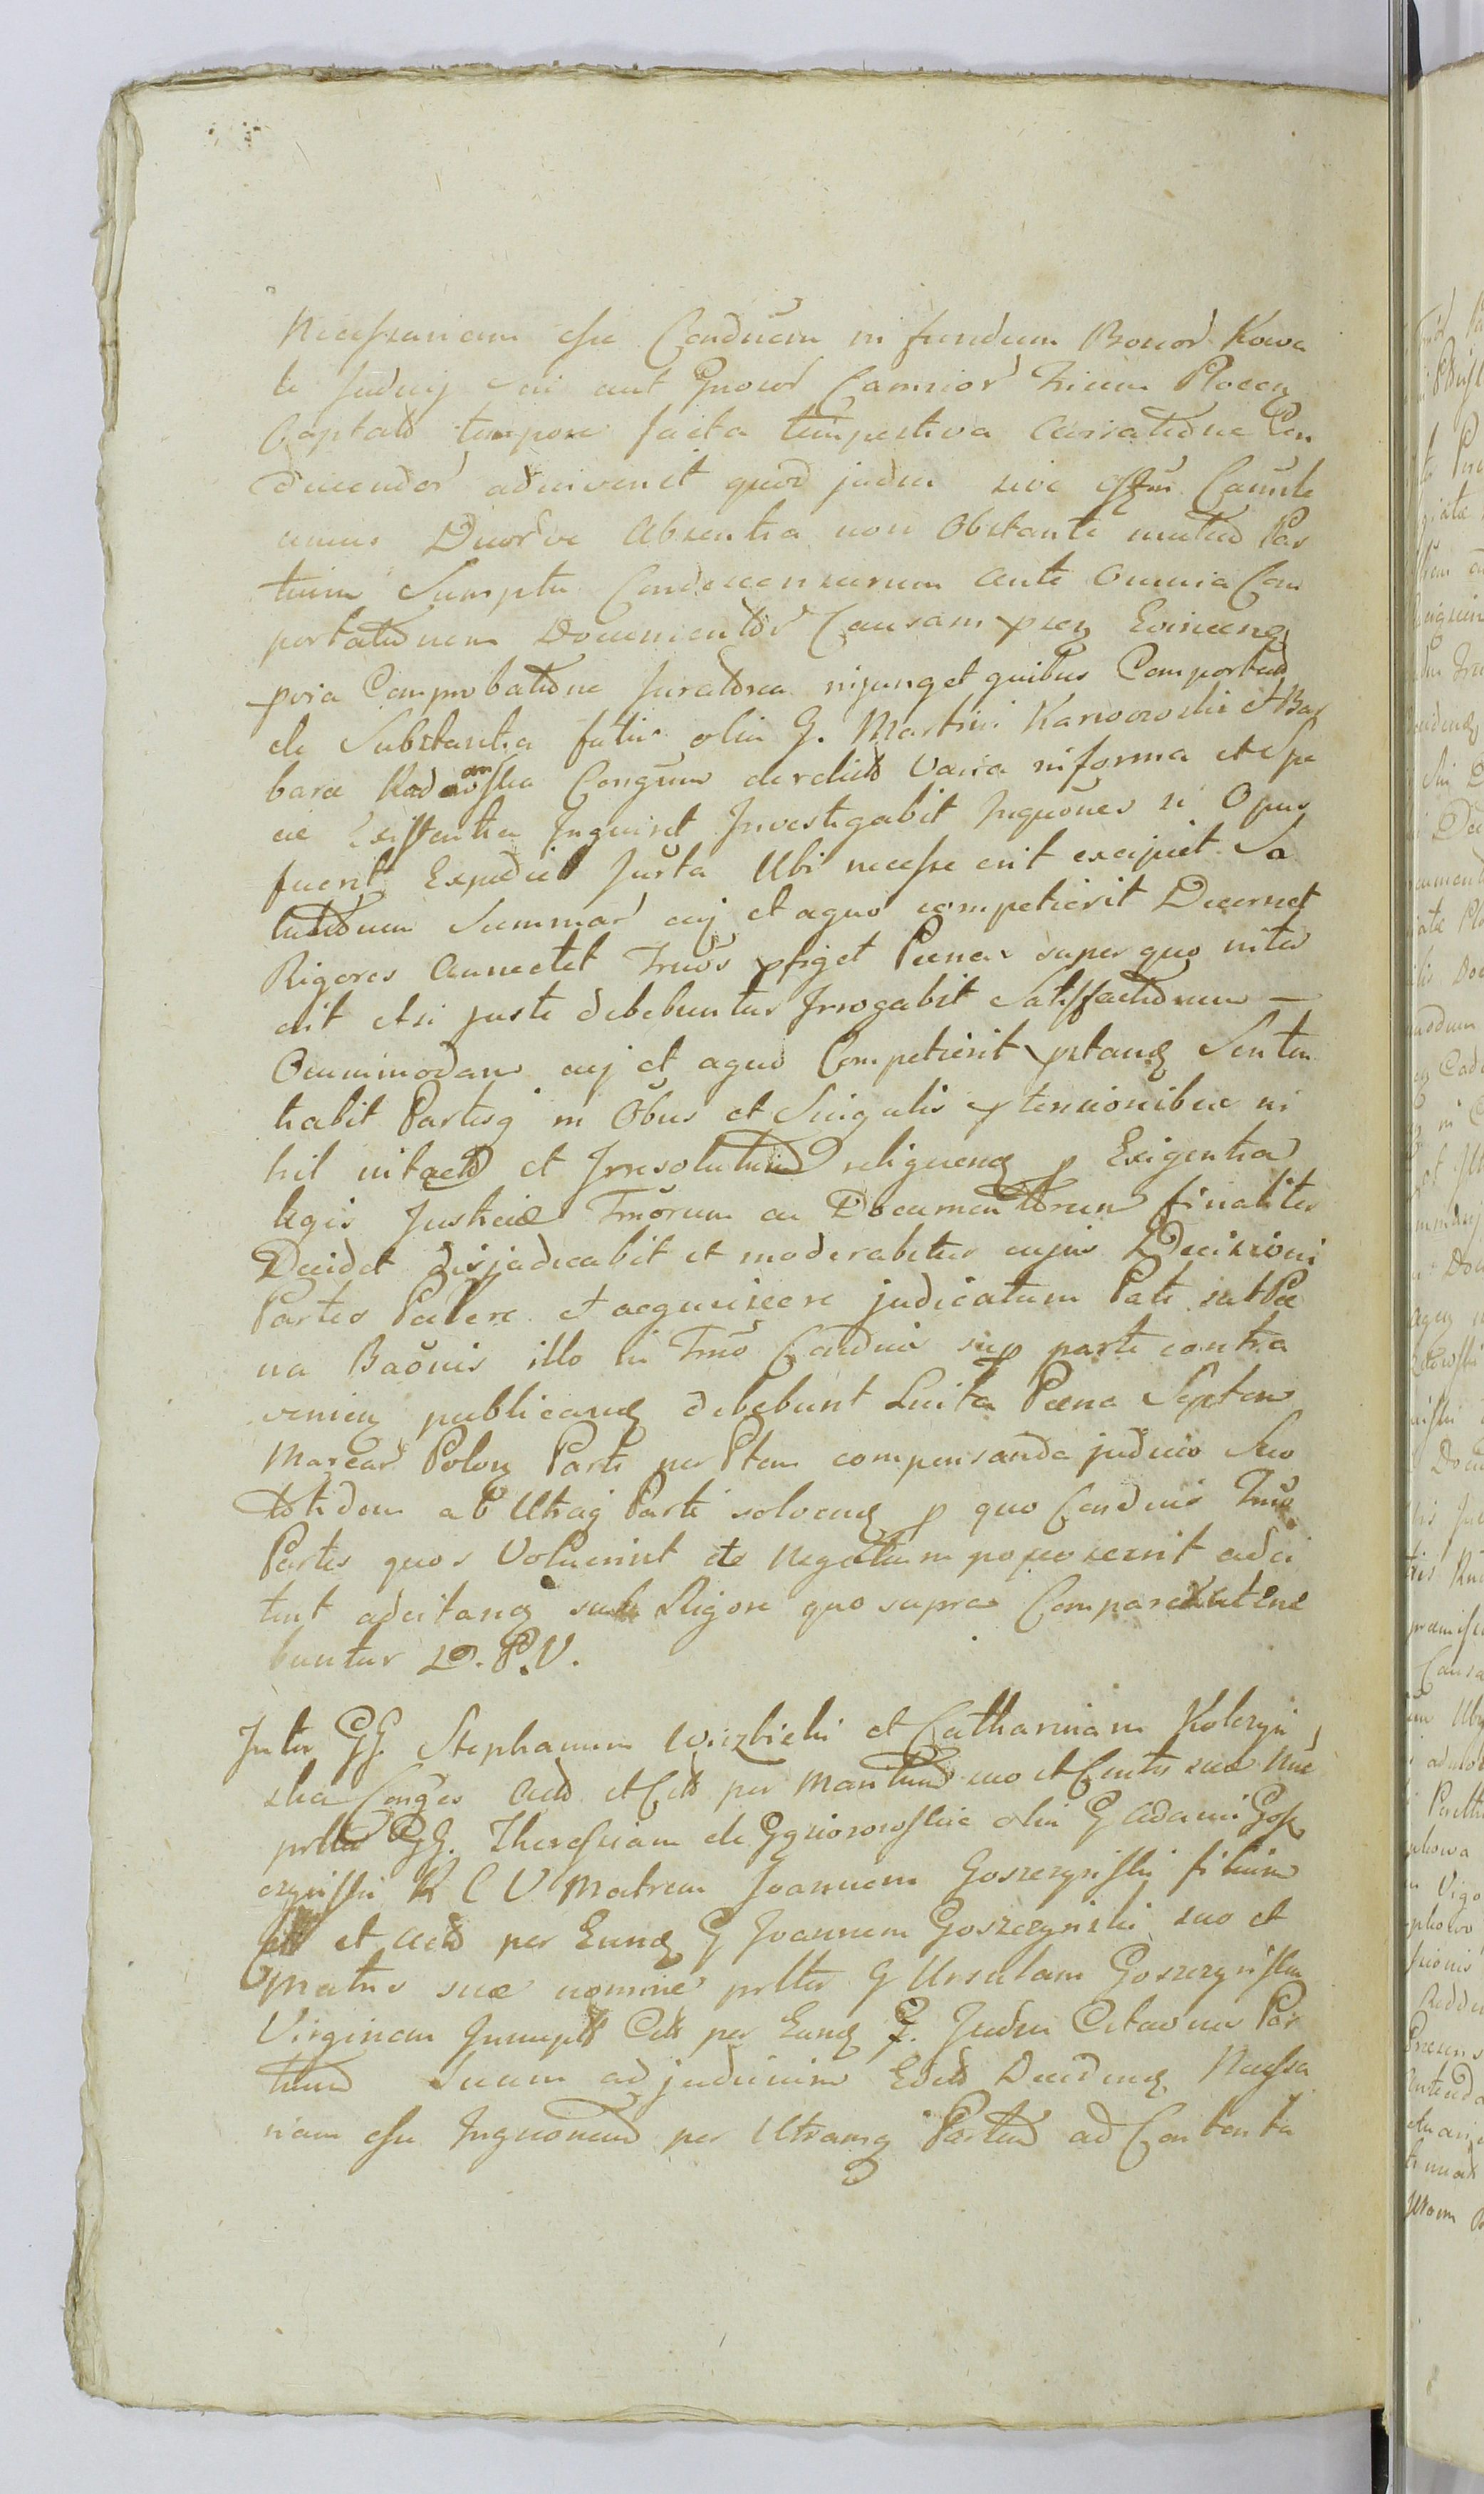 Necessariam esse Conducm in fundum Bonor Kowa
le Judicij sui aut Gnosor Camrior Trium Plocen
Captato tempore facta tempestiva Cariatione Con
ducendor adinvenit quod judm sive offm Camrle
unius Duorve Absentia non Obstante mutuo Par
tium Sumptu Condescensurum ante Omnia Com
portationem Documentor Causam pren Evincenq
pvia Comprobatione Juratoria injunget quibus Comportatis
de Substantia futi olim G. Martini Karwowski et Bar
barae Rad ska Congum derelicto Varia in forma et Spe
cie Existentia Inquiret Investigabit Inquones si Opus
fuerit Expediet Jurta Ubi necesse erit excipiet So
lutionem Summar cuj et aquo competierit Decernet
Rigores Annectet Tmos pfiget Paenas super quo intu
erit etsi juste debebuntur Irrogabit Satisfactionem —
Omnimodam cuj et aquo Competierit pstanq Senten
tiabit Partesq in Obus et Singulis ptensionibus ni
hil intacto et Irresolutum reliquenq p Exigentia
legis Justitiae Tmorum ac Documentorum finaliter
Decidet disjudicabit et moderabitur cujus Decisioni
Partes Parere et acquiescere judicatum Pati sub Pae
na Baonis illo in Tmo Condnis sup parte contra
venien publicanq debebunt Luita Paena Septem
Marcar Polon Parti per Ptem compensanda judicio Suo
totidem ab Utraq Parte solvenq p quo Condnis Tmo
Partes quos Voluerint et Negotium poposcerit adci
tent adcitanq sub Rigore quo supra Comparere tene
buntur D. P. V.
Inter GG. Stephanum Wierzbicki et Catharinam Kolczyn
ska Conges Acto et Cito per Maritum suo et Consortis suae Nne
prlter GG. Theressiam de Gasiorowskie olim G Adami Gosz
czynski R C V Matrem Joannem Goszczynski filium
Cito et Acto per Eunq G Joannem Goszczynski suo et
Matris suae nomine prlter G Ursulam Goszczynska
Virginem Innupto Cito per Eunq G. Judm Citaones Par
tium Suam ad judicium Edito Decidenq Necessa
riam esse Inquonem per Utramq Partem ad Contenta